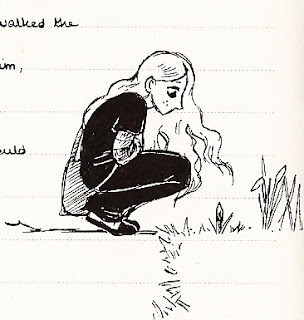 walked the
im,
ould